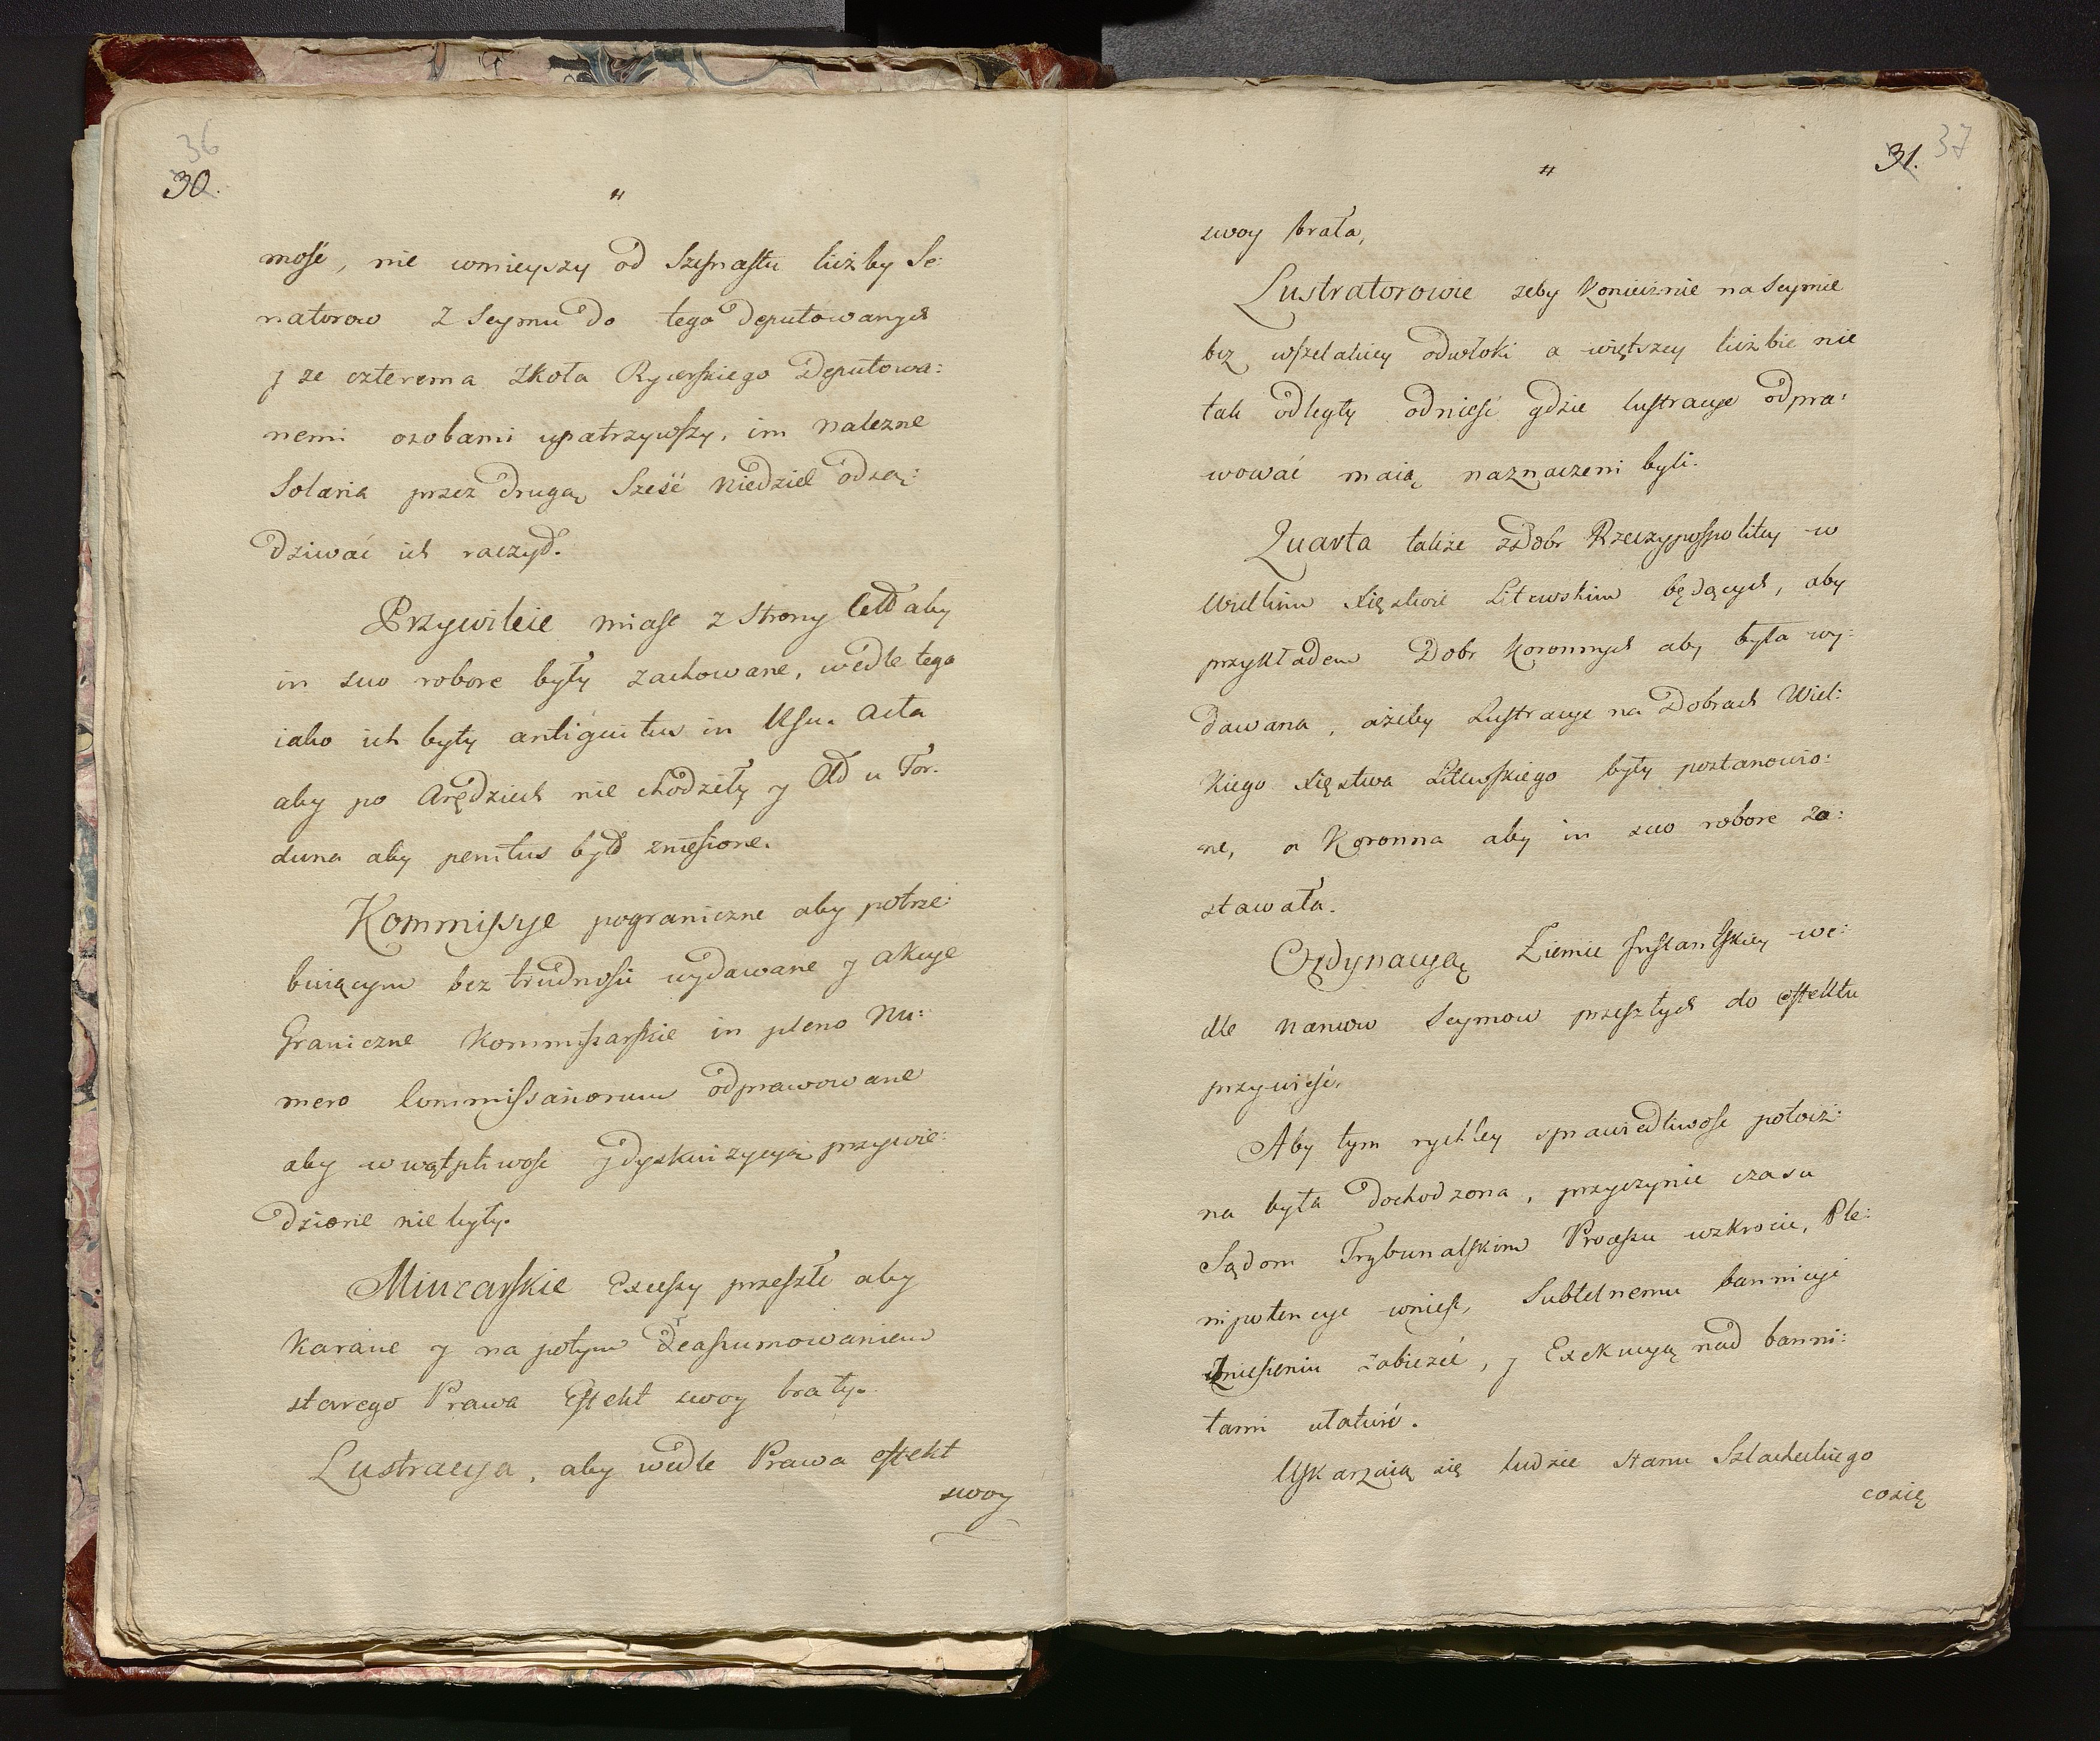 36
30.
"
mość, nie wmieyszy od Szesnastu liczby Se:
natorow z Seymu do tego deputowanych
y ze czterema Zkoła Rycerskiego Deputowa:
nemi osobami upatrzywszy, im nalezne
Solaria przez drugą Sześć Niedziel odsą:
dziwać ich raczył.
Przywileie miast z strony Ceł aby
in suo robore były zachowane, wedle tego
iako ich były antiquitus in Usu. Acta
aby po Arędziech nie chodziły y Cło u For:
duna aby penitus było zniesione.
Kommissye pograniczne aby potrze:
buiącym bez trudnosci wydawane y akcye
Graniczne Kommissarskie in pleno Nu:
mero Commissariorum odprawowane
aby w wątpliwość y dyskwizycyą przywie:
dzione nie były.
Mincarskie Excessy przeszłe aby
Karane y na potym Reassumowaniem
starego Prawa Effekt swoy brały.
Lustracya, aby wedle Prawa effekt
swoy
37
31.
"
swoy brała,
Lustratorowie zeby Koniecznie na Seymie
bez wszelakiey odwłoki a większey liczbie nie
tak odległy odnieść gdzie lustracye odpra:
wować maią naznaczeni byli.
Quarta także z Dobr Rzeczypospolitey w
Wielkim Xięstwie Litewskim będących, aby
przykładem Dobr Koronnych aby była wy:
dawana, ażeby Lustracye na Dobrach Wiel:
Kiego Xięstwa Litewskiego były postanowio:
ne, a Koronna aby in suo robore zo:
stawała.
Ordynacyą Ziemie Inflantskiey we:
dle Namow Seymow przeszłych do effektu
przywieść.
Aby tym rychley sprawiedliwość potocz:
na była dochodzona, przyczynie czasu
Sądom Trybunalskim Processu wzkrocie, Ple:
nipotencye wnieść, Subtelnemu bannicyi
Zniesieniu zabieżeć, y Exekucyą nad banni:
tami ułatwić.
Uskarzaią się ludzie Stanu Szlacheckiego
cosię